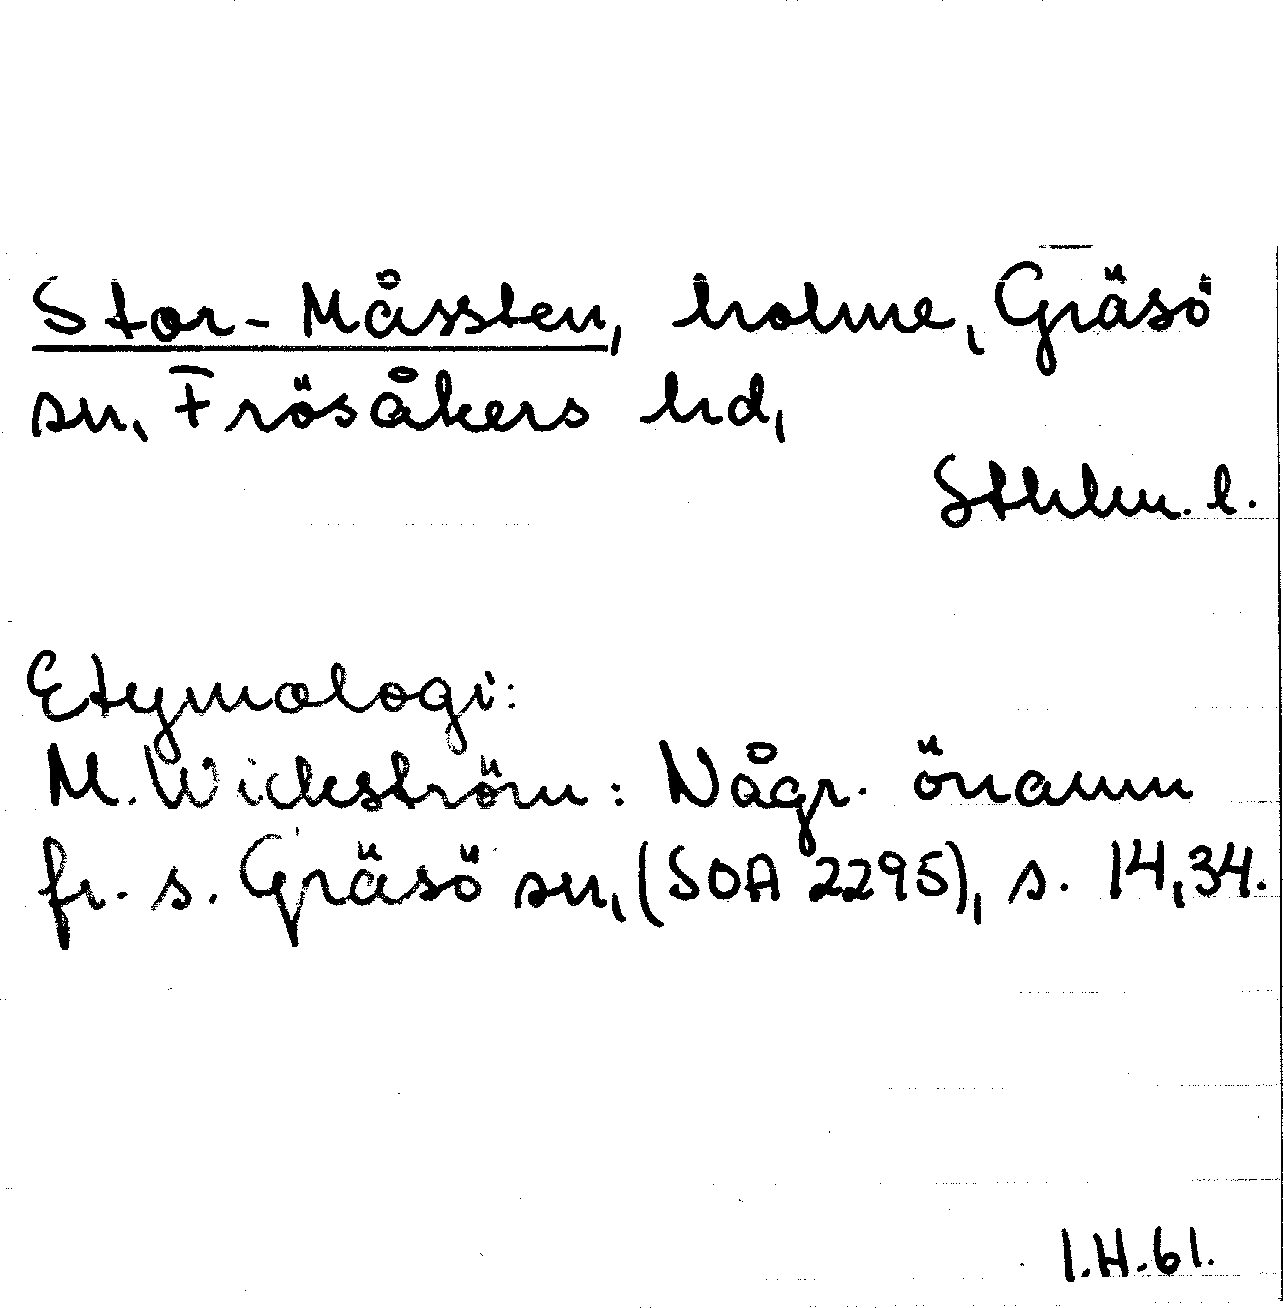 Stor-Måssten, holme, Gräsö
sn, Frösåkers hd,
Sthlm. l.
Etymologi:
M. Wickström: Någr. önamn
fr. s. Gräsö sn, (SOA 2295), s. 14, 34.
I.H.61.